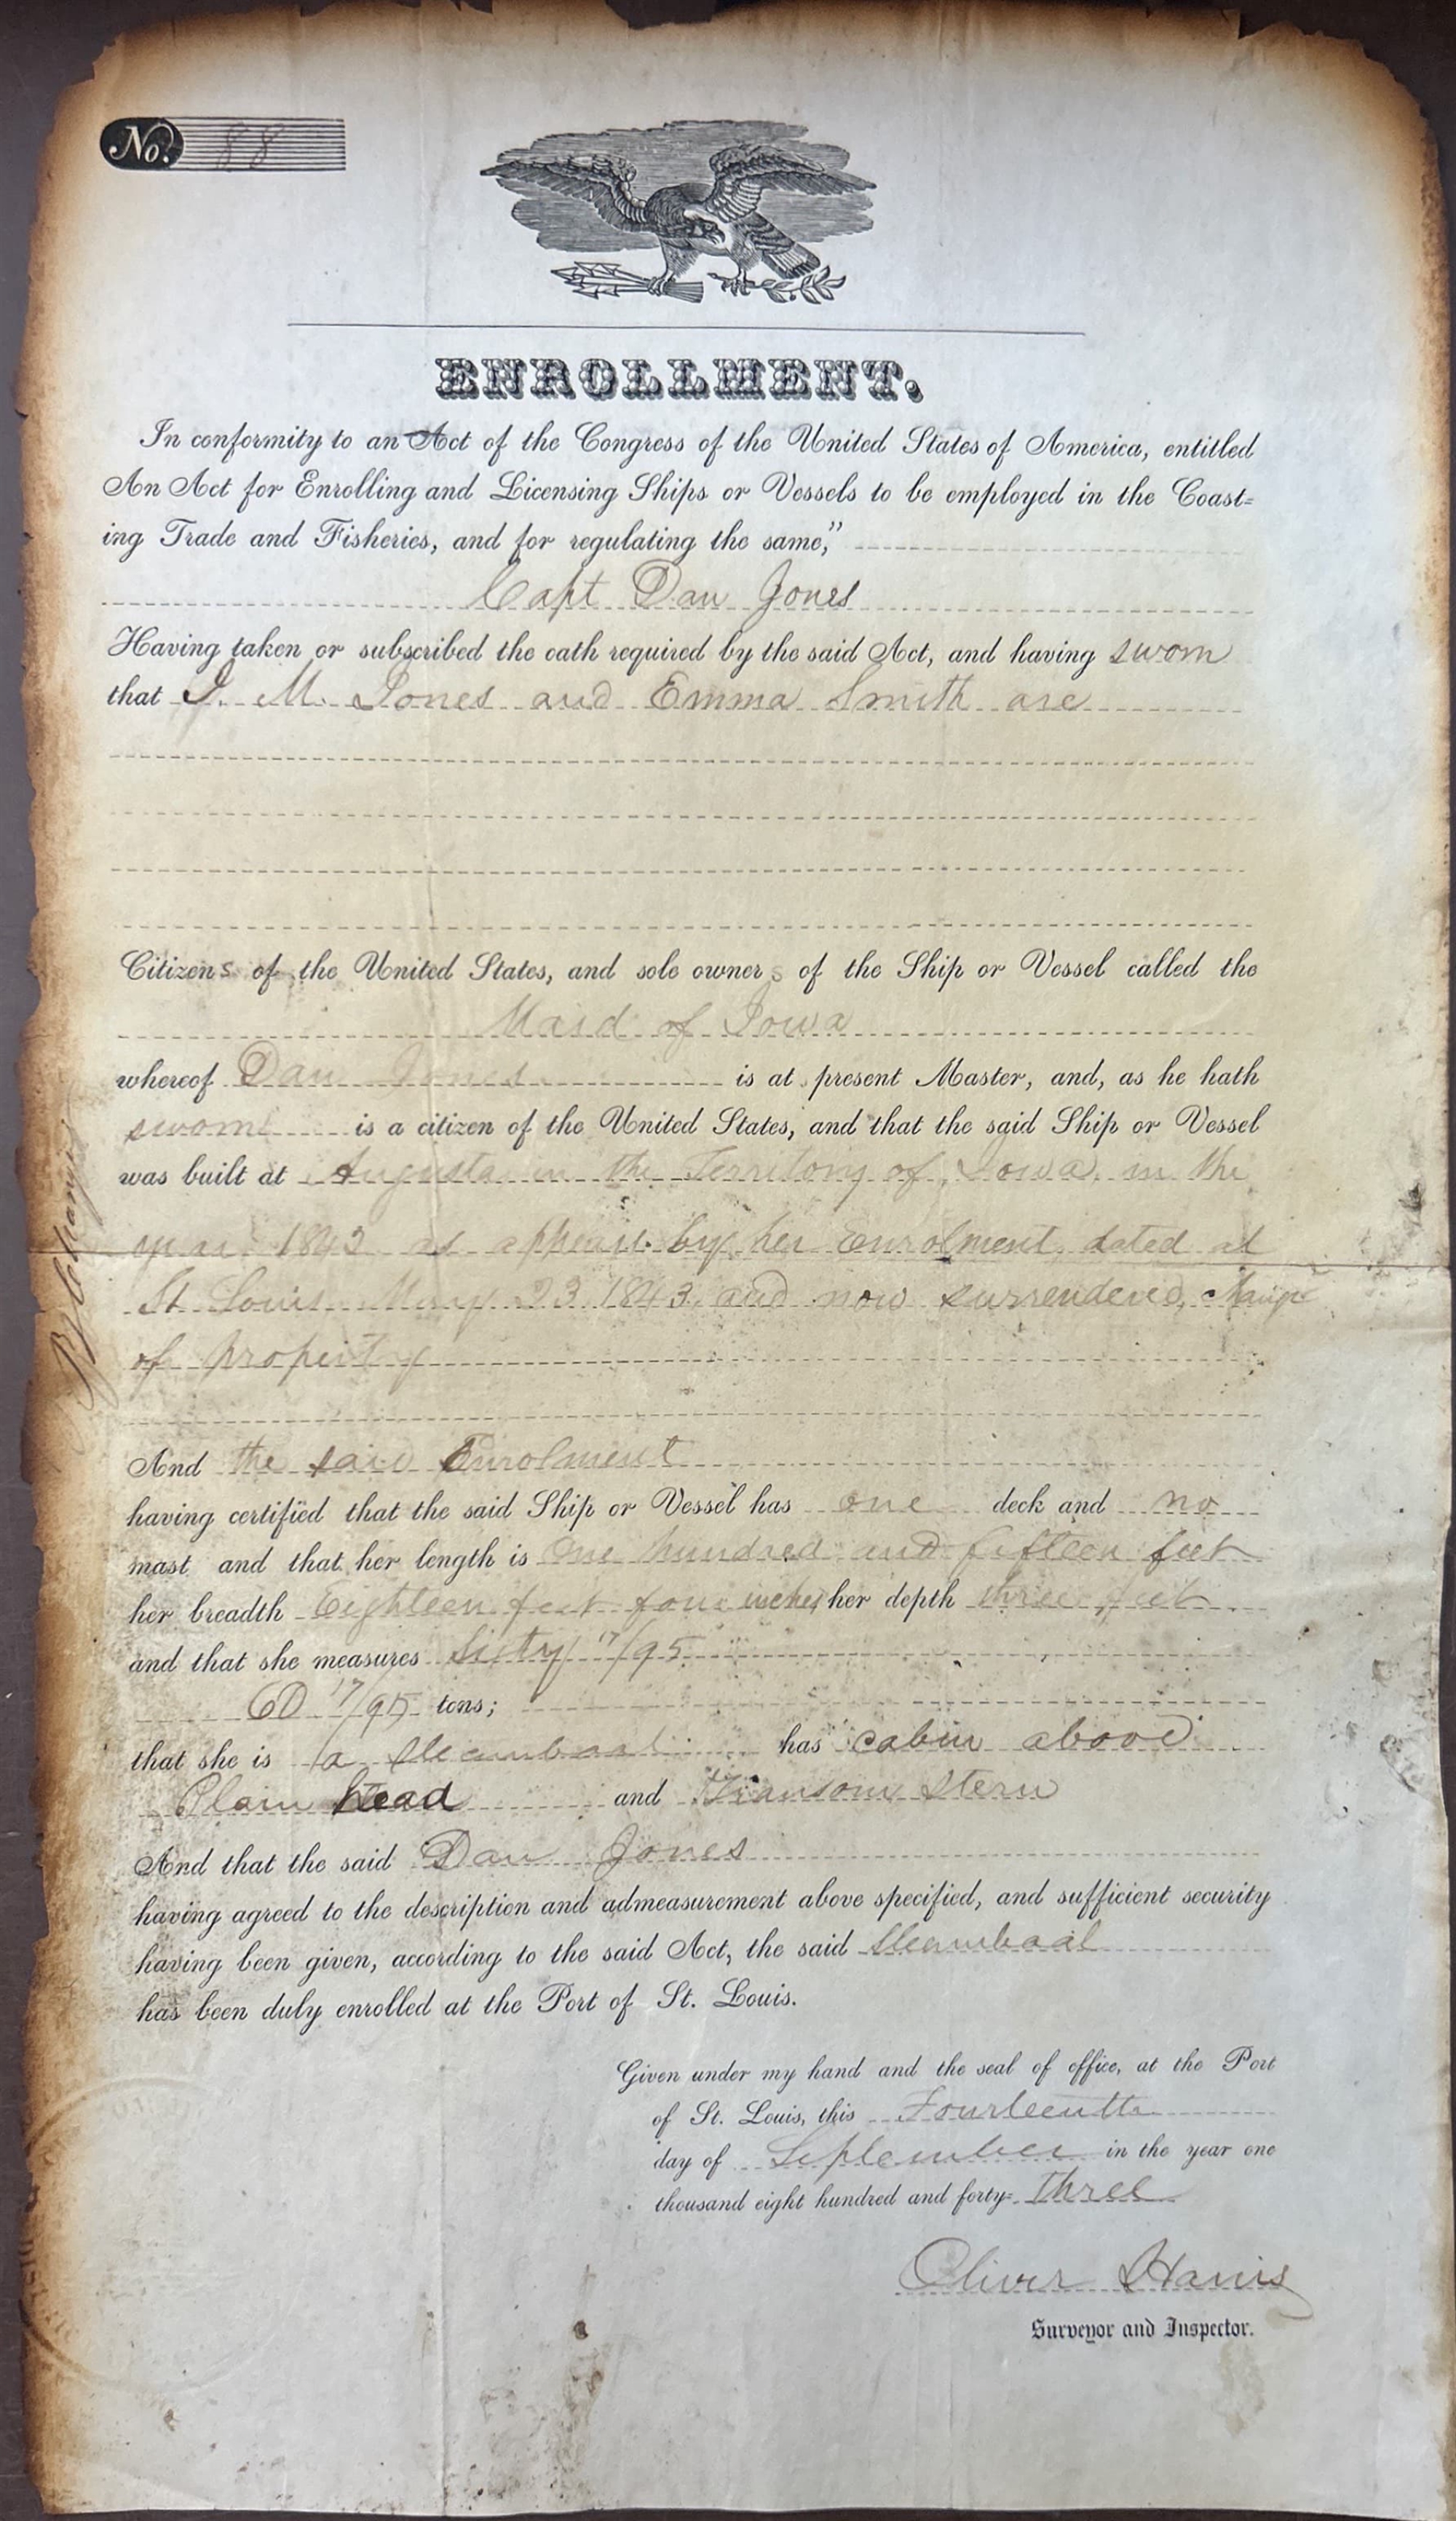 No. 88
ENROLLMENT.
In conformity to an Act of the Congress of the United States of America, entitled
An Act for Enrolling and Licensing Ships or Vessels to be employed in the Coast=
ing Trade and Fisheries, and for regulating the same,"
Capt Dan Jones
Having taken or subscribed the oath required by the said Act, and having sworn
that J. M. Jones and Emma Smith are
Citizens of the United States, and sole owners of the Ship or Vessel called the
Maid of Iowa
whereof Dan Jones is at present Master, and, as he hath
sworn is a citizen of the United States, and that the said Ship or Vessel
was built at Augusta in the Territory of Iowa, in the
year 1843 as appears by her Enrolment, dated at
St Louis May 23 1843 and now surrendered,
of property
And the said Enrolment
having certified that the said Ship or Vessel has one deck and no
mast and that her length is One hundred and fifteen feet
her breadth Eighteen feet four inches, her depth three feet
and that she measures Sixty 17/95
60 17/95 tons;
that she is a Steamboat has cabin above
Plain head and Transom Stern
And that the said Dan Jones
having agreed to the description and admeasurement above specified, and sufficient security
having been given, according to the said Act, the said Steamboat
has been duly enrolled at the Port of St. Louis.
Given under my hand and the seal of office, at the Port
of St. Louis, this Fourteenth
day of September in the year one
thousand eight hundred and forty= three
Oliver Harris
Surveyor and Inspector.